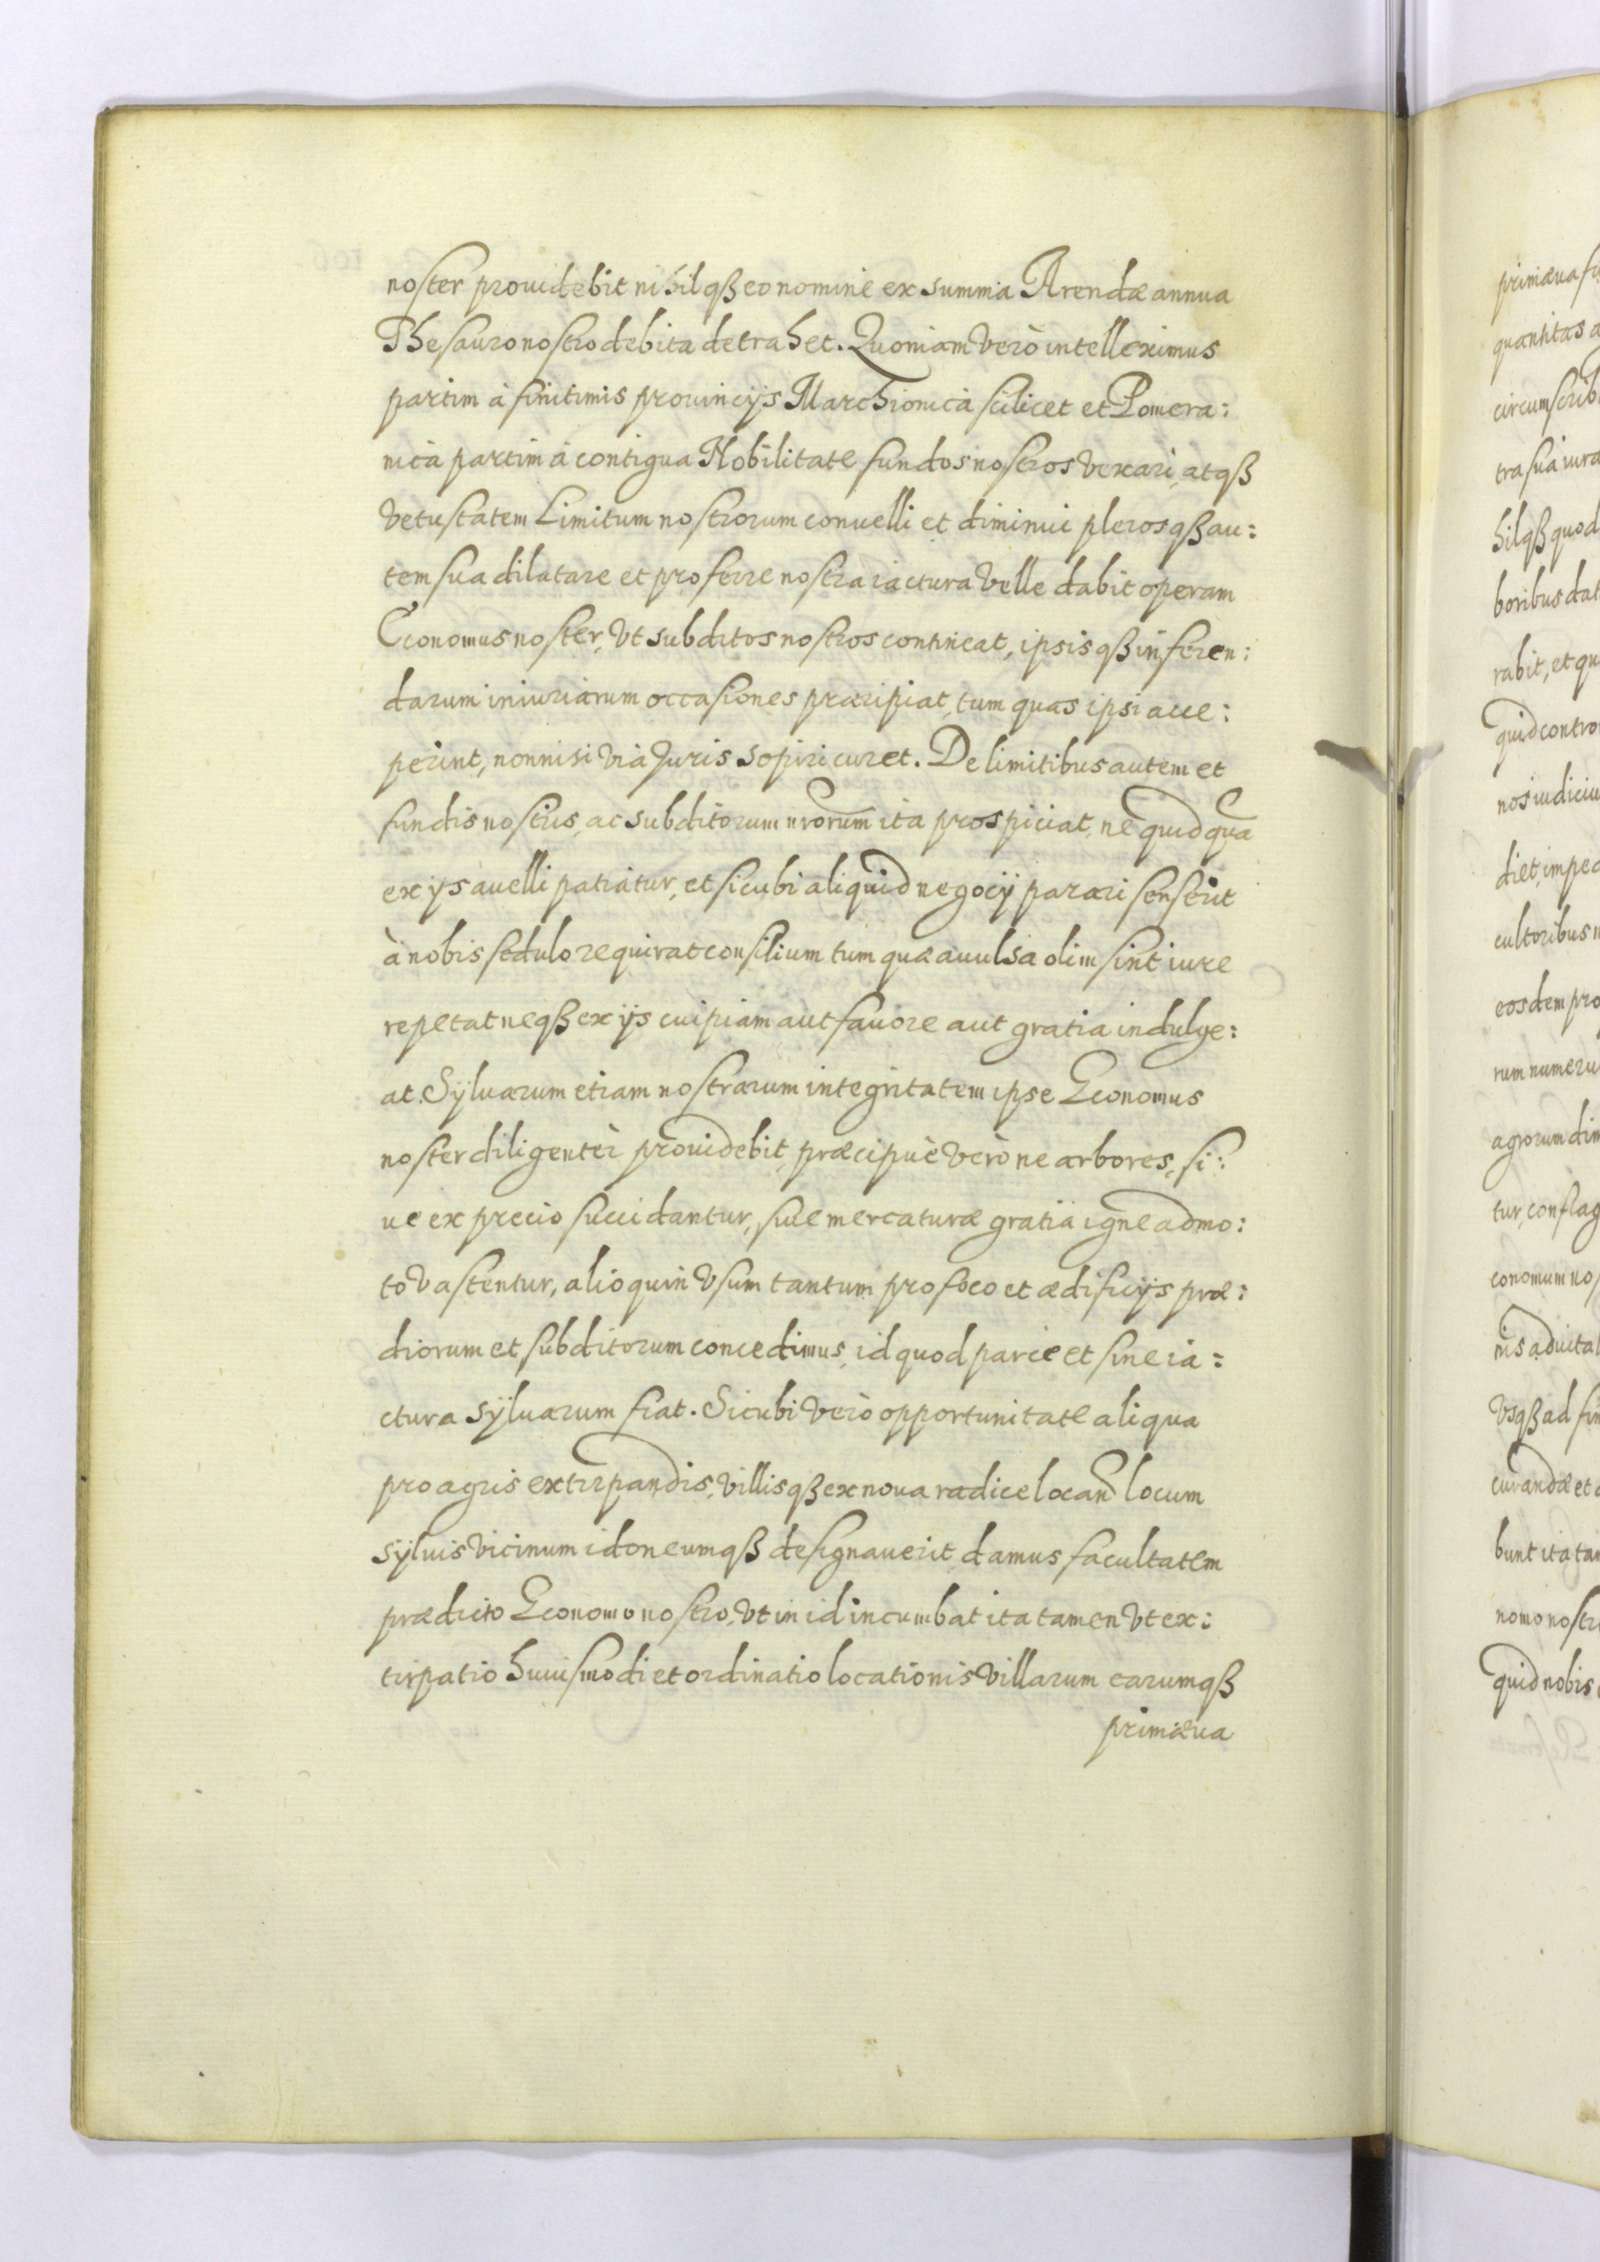 noster prouidebit nihilqȝ eo nomine ex summa Arendæ annua
Thesauro nostro debita detrahet. Quoniam verò intelleximus
partim à finitimis prouincijs Marchionica scilicet et Pomera:
nica partim à contigua Nobilitate fundos nostros vexari, atqȝ
vetustatem Limitum nostrorum conuelli et diminui plerosqȝ au:
tem sua dilatare et proferre nostra iactura velle dabit operam
Œconomus noster, vt subditos nostros contineat, ipsisqȝ inferen:
darum iniuriarum occasiones præripiat, tum quas ipsi acce:
perint, nonnisi via Juris sopiri curet. De limitibus autem et
fundis nostris, ac subditorum nrorum ita prospiciat, ne quid qua
ex ijs auelli patiatur, et sicubi aliquid negocÿ parari senserit
à nobis sedulo requirat consilium tum quæ auulsa olim sint iure
repetat neqȝ ex ijs cuipiam aut fauore aut gratia indulge:
at. Sÿluarum etiam nostrarum integritatem ipse Œconomus
noster diligentèr prouidebit, præcipuè verò ne arbores, si:
ue ex precio succidantur, siue mercaturæ gratia igne admo:
to vastentur, alioquin vsum tantum pro foco et ædificijs præ:
diorum et subditorum concedimus, id quod parcè et sine ia:
ctura sÿluarum fiat. Sicubi verò opportunitate aliqua
pro agris extirpandis, villisqȝ ex noua radice locan locum
sÿluis vicinum idoneumqȝ designauerit, damus facultatem
prædicto Œconomo nostro, vt in id incumbat ita tamen vt ex:
tirpatio huiusmodi et ordinatio locationis villarum earumqȝ
primæua
primæua
quantitas
circumscrib
tra sua iura
hilqȝ quod
boribus dat
rabit, et qu
quid contro
nos iudiciu
diet, impe
cultoribus n
eosdem pro
rum numeru
agrorum dim
tur, conflag
conomum nos
nis aduital
vsqȝ ad fin
curandæ et
bunt ita tam
nomo nostr
quid nobis